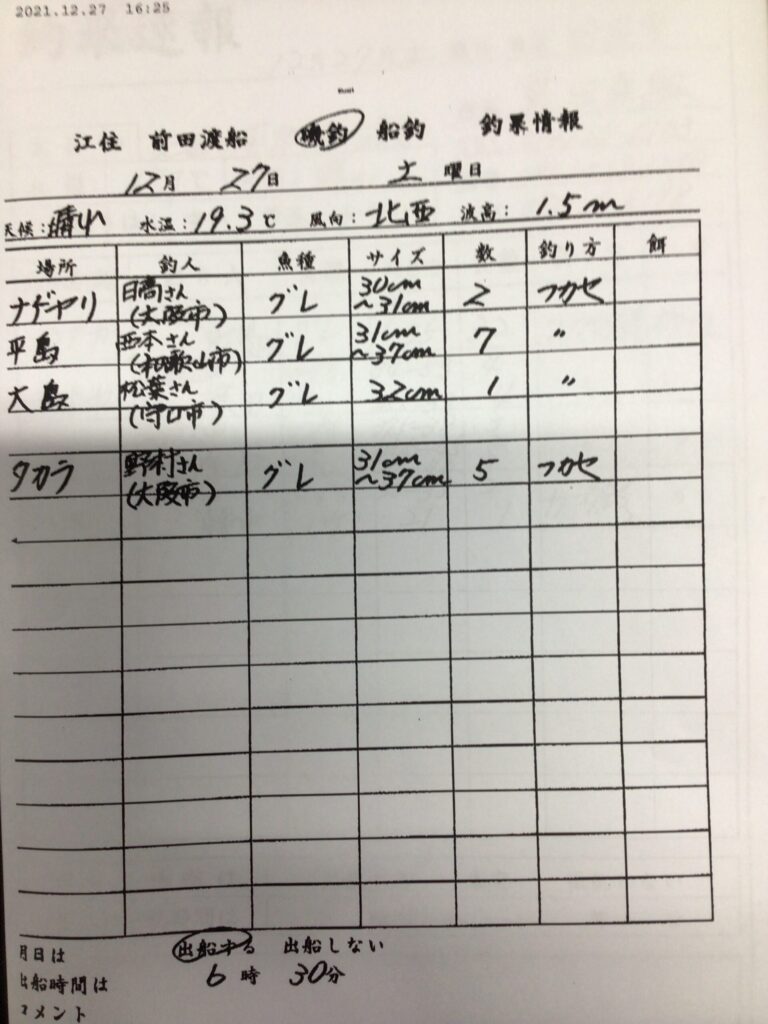 2021.12.27 16:25
江住 前田渡船 磯釣 船釣 釣果情報
12月 27日 土 曜日
天候:晴れ 水温:19.3℃ 風向:北西 波高: 1.5m
場所 釣人 魚種 サイズ 数 釣り方 餌
ナデヤリ 日高さん (大阪市) グレ 30cm ~31cm 2 フカセ
平島 西本さん (和歌山市) グレ 31cm ~37cm 7 〃
大島 松葉さん (守口市) グレ 32cm 1 〃
タカラ 野村さん (大阪市) グレ 31cm ~37cm 5 フカセ
月日は 出船する 出船しない
出船時間は 6時 30分
コメント